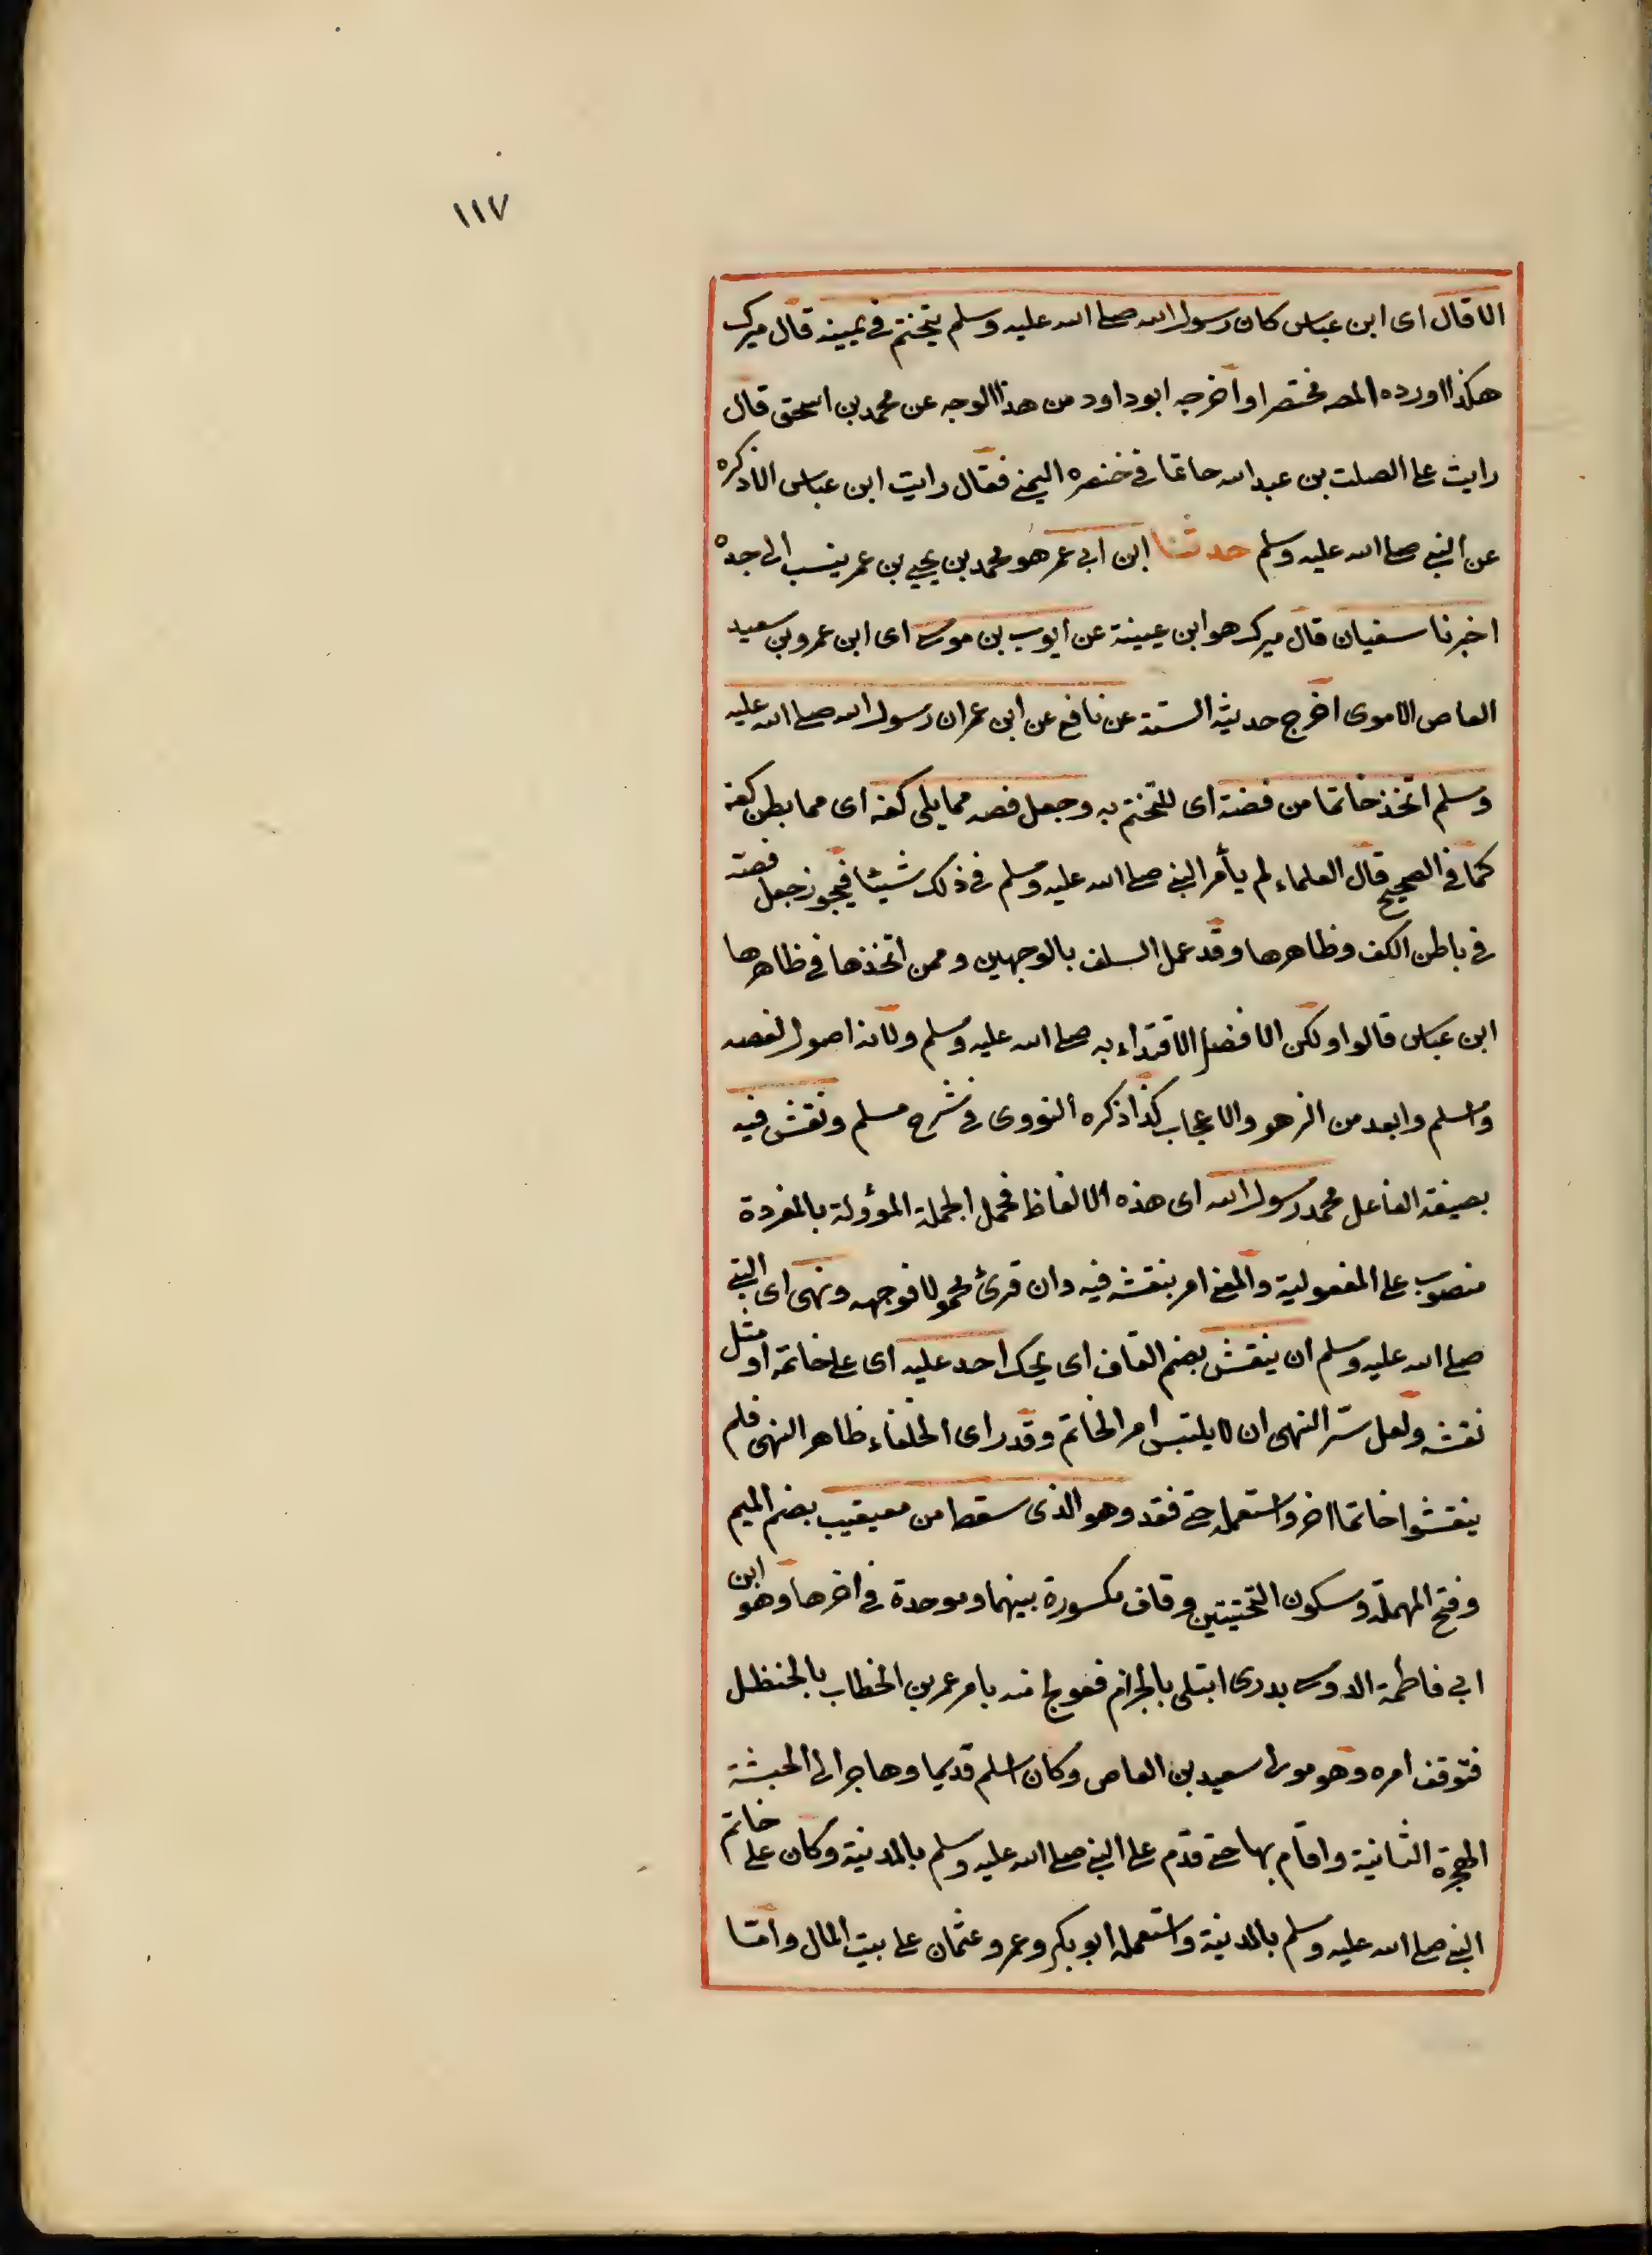 ١١٧
الا قال اى ابن عباس كان رسول الله صلى الله عليه وسلم يتختم فى يمينه قال ميرك
هكذا اورده المصـ مختصرا واخرجه ابوداود من هذا الوجه عن محمد بن اسحق قال
رايت على الصلت بن عبدالله خاتما فى خنصره اليمنى فقال رايت ابن عباس الا ذكره
عن النبى صلى الله عليه وسلم حدثنا ابن ابى عمر هو محمد بن يحيى بن عمر ينسب الى جده
اخبرنا سفيان قال ميرك هو ابن عيينة عن ايوب بن موسى اى ابن عمرو بن سعيد
العاص الاموى اخرج حديثه الستة عن نافع عن ابن عمر ان رسول الله صلى الله عليه
وسلم اتخذ خاتما من فضة اى للتختم به وجعل فصه مما يلى كفه اى مما بطن كفه
كما فى الصحيح قال العلماء لم يأمر النبى صلى الله عليه وسلم فى ذلك شيئا فيجوز جعل فصه
فى باطن الكف وظاهرها وقد عمل السلف بالوجهين وممن اتخذها فى ظاهرها
ابن عباس قالوا ولكن الافضل الاقتداء به صلى الله عليه وسلم ولانه اصول لفصه
واسلم وابعد من الزهو والاعجاب كذا ذكره النووى فى شرح مسلم ونقش فيه
بصيغة الفاعل محمد رسول الله اى هذه الالفاظ فمحل الجملة المؤولة بالمفردة
منصوب على المفعولية والمعنى امر بنقشه فيه وان قرئ مجهولا فوجهه ونهى اى النبى
صلى الله عليه وسلم ان ينقش بضم القاف اى يحك احد عليه اى على خاتمه او مثل
نقشه ولعل سرّ النهى ان لا يلتبس امر الخاتم وقد راى الخلفاء ظاهر النهى فلم
ينقشوا خاتما اخر واستعمله حتى فقد وهو الذى سقط من معيقيب بضم الميم
وفتح المهملة وسكون التحتيتين وقاف مكسورة بينهما وموحدة فى اخرها وهو ابن
ابى فاطمة الدوسى بدرى ابتلى بالجذام فعولج منه بامر عمر بن الخطاب بالحنظل
فتوقف امره وهو مولى سعيد بن العاص وكان اسلم قديما وهاجر الى الحبشة
الهجرة الثانية واقام بها حتى قدم على النبى صلى الله عليه وسلم بالمدينة وكان على خاتم
النبى صلى الله عليه وسلم بالمدينة واستعمله ابو بكر وعمر وعثمان على بيت المال وامّا